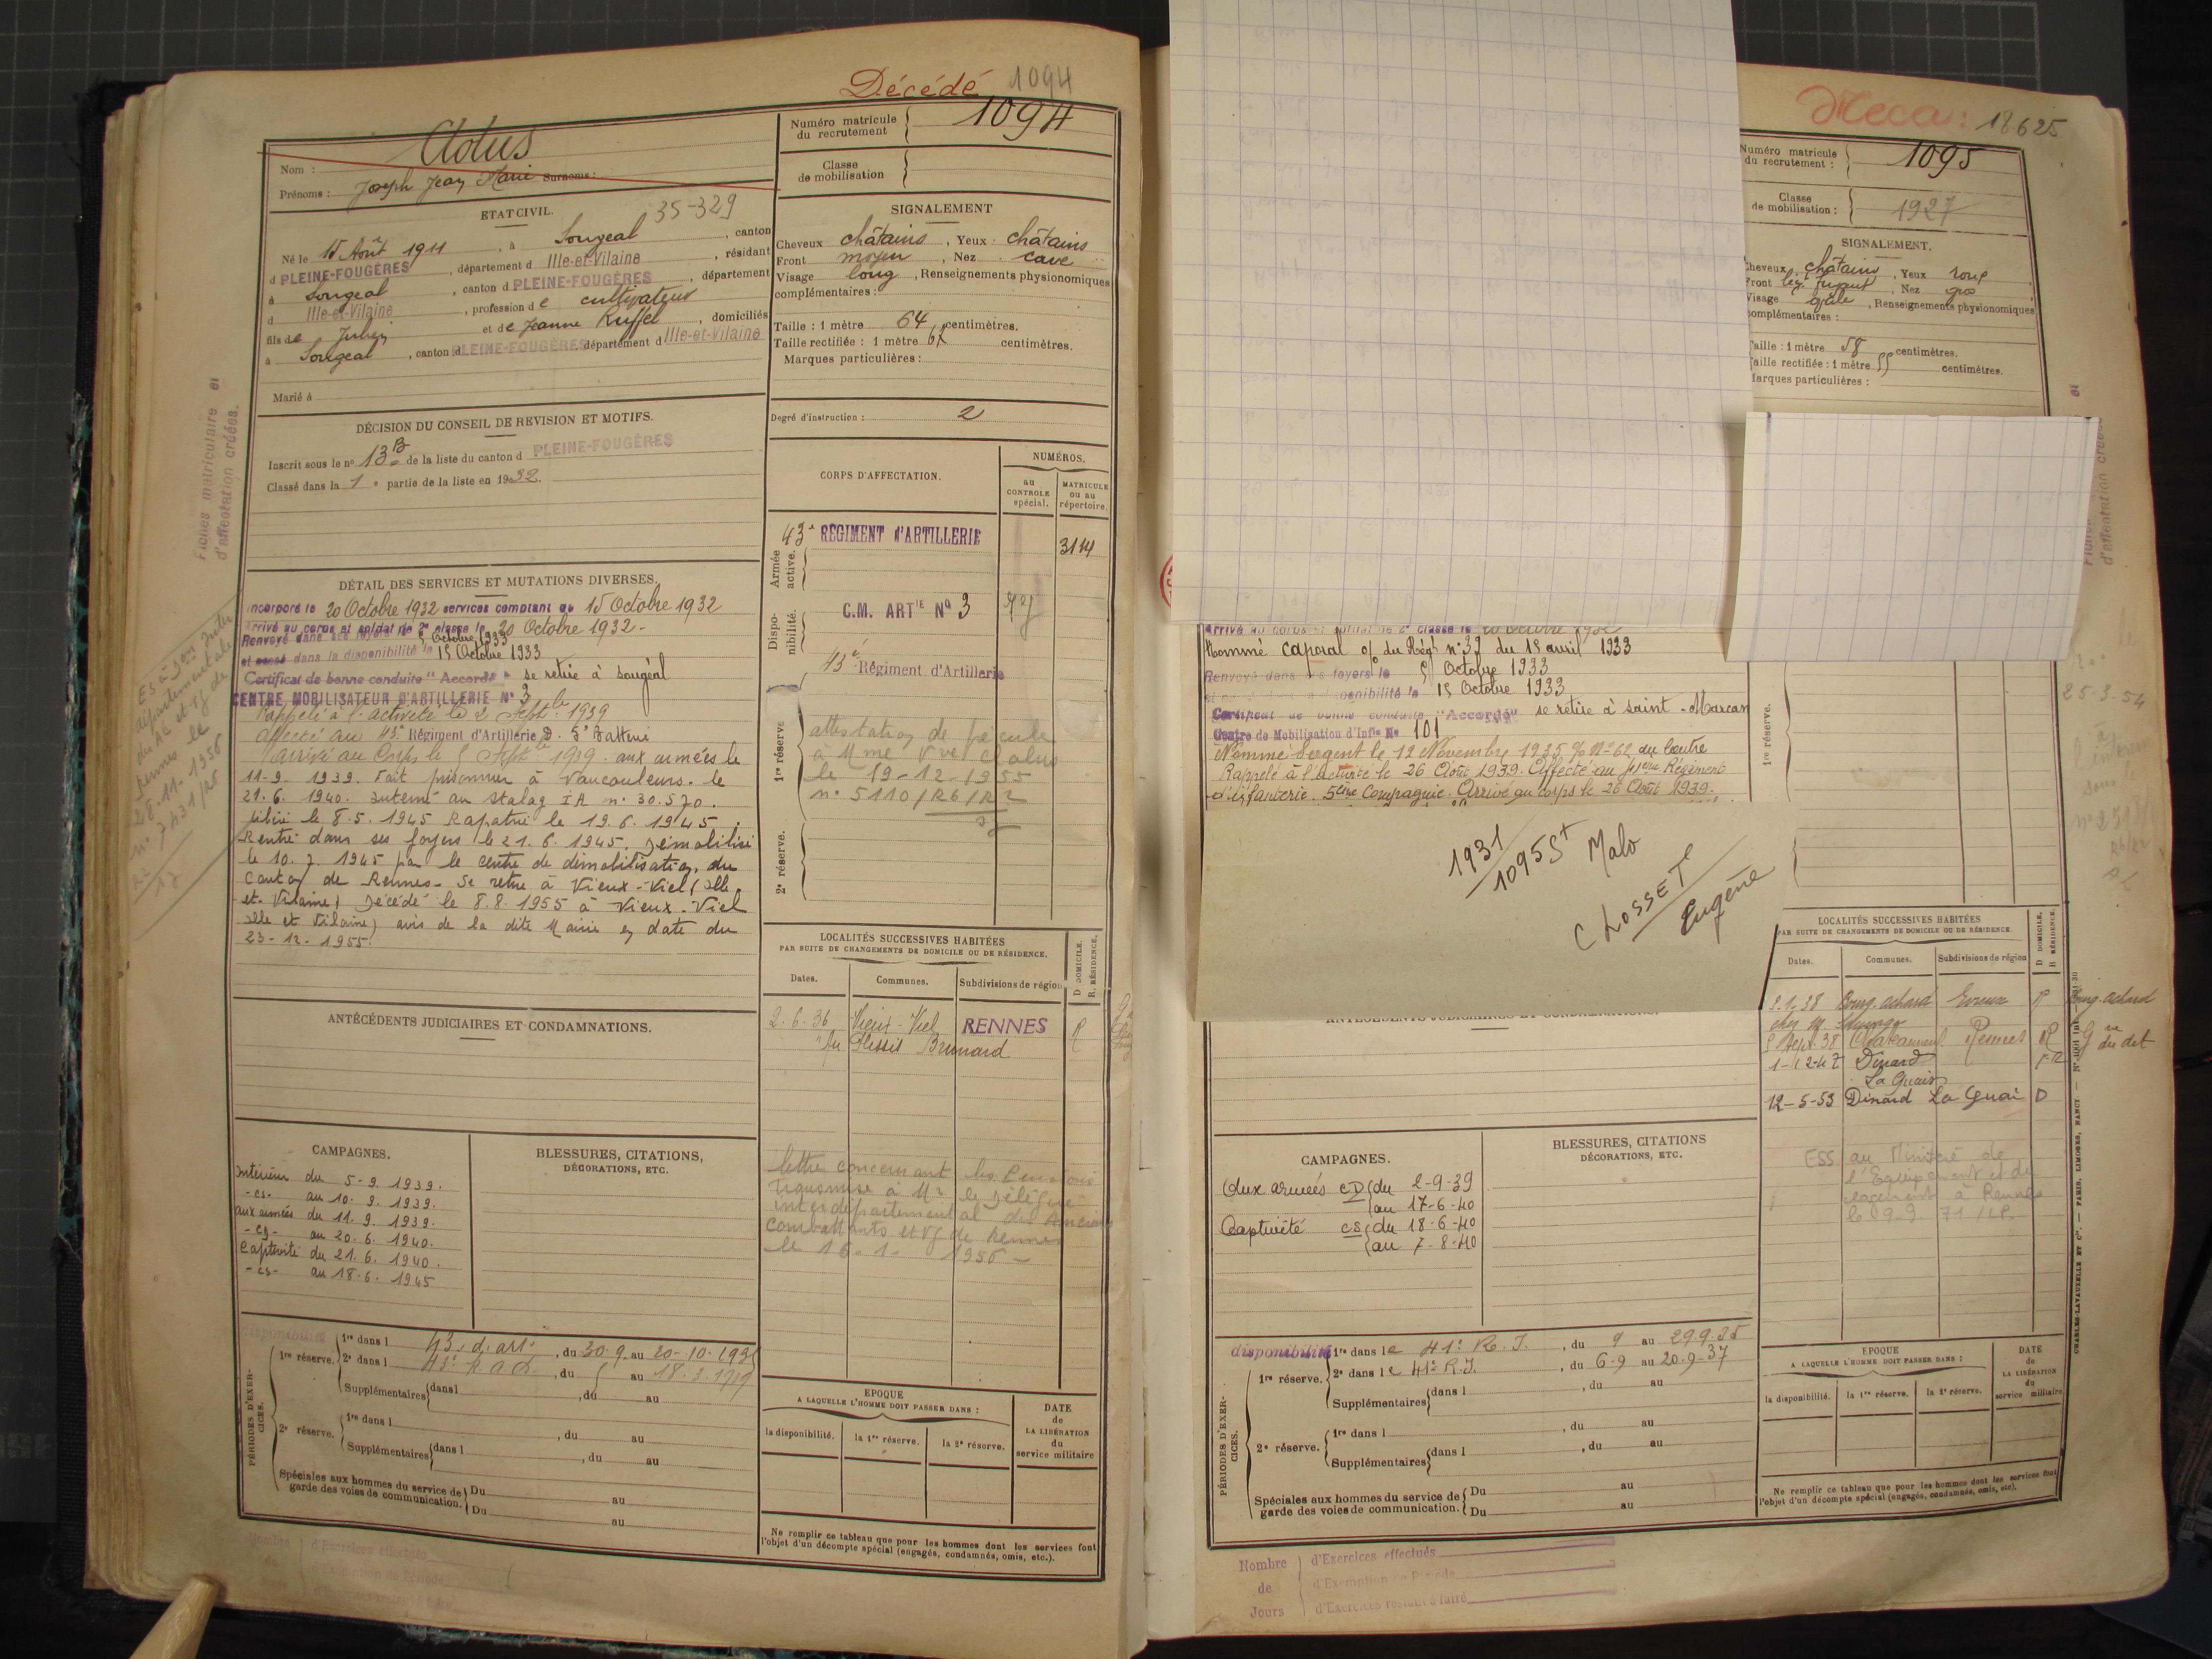 Décédé 1094
Nom : Clolus
Prénoms : Joseph Jean Marie Surnoms :
Numéro matricule du recrutement 1094
Classe de mobilisation
ETAT CIVIL. 35-329
Né le 15 Août 1911, à Sougeal, canton
d PLEINE-FOUGÈRES, département d Ille-et-Vilaine, résidant
à Sougeal, canton d PLEINE-FOUGÈRES, département
d Ille-et-Vilaine, profession de cultivateur
fils de Julien et de Jeanne Ruffel, domiciliés
à Sougeal, canton d PLEINE-FOUGÈRES département d Ille-et-Vilaine
Marié à
SIGNALEMENT
Cheveux châtains, Yeux châtains
Front moyen, Nez cave
Visage long, Renseignements physionomiques
complémentaires :
Taille : 1 mètre 64 centimètres.
Taille rectifiée : 1 mètre centimètres.
Marques particulières :
Degré d'instruction : 2
DÉCISION DU CONSEIL DE REVISION ET MOTIFS.
Inscrit sous le nº 13 B de la liste du canton d PLEINE-FOUGÈRES
Classé dans la 1e partie de la liste en 1932.
Fiches matriculaire et
d'affectation créées.
CORPS D'AFFECTATION.
NUMÉROS.
au CONTROLE spécial.
MATRICULE ou au répertoire.
Armée active.
43e RÉGIMENT d'ARTILLERIE 3114
Disponibilité.
C.M. ARTIE Nº 3
43e Régiment d'Artillerie
1re réserve
attestation de pécule
à Mme Vve Clolus
le 19-12-1955
n. 5110/R6/R2
2e réserve.
DÉTAIL DES SERVICES ET MUTATIONS DIVERSES.
Incorporé le 20 Octobre 1932 services comptant du 15 Octobre 1932
Arrivé au corps et soldat de 2e classe le 20 Octobre 1932 -
Renvoyé dans ses foyers le 5 Octobre 1933
et passé dans la disponibilité le 15 Octobre 1933
Certificat de bonne conduite "Accordé" se retire à Sougéal
CENTRE MOBILISATEUR D'ARTILLERIE Nº 3
Rappelé à l'activité le 2 Septbre 1939
Affecté au 43e Régiment d'Artillerie D. 5e Batterie
Arrivé au Corps le 5 Septbre 1939. aux armées le
11-9-1939. Fait prisonnier à Vaucouleurs. le
21.6.1940. interné au stalag IA n. 30.570.
libéré le 8.5.1945 Rapatrié le 19.6.1945.
Rentré dans ses foyers le 21.6.1945. Démobilisé
le 10.7.1945 par le centre de démobilisation du
Canton de Rennes- Se retire à Vieux-Viel (Ille
et-Vilaine) Décédé le 8.8.1955 à Vieux-Viel
Ille et Vilaine) avis de la dite Mairie en date du
23-12-1955.
ANTÉCÉDENTS JUDICIAIRES ET CONDAMNATIONS.
LOCALITÉS SUCCESSIVES HABITÉES
PAR SUITE DE CHANGEMENTS DE DOMICILE OU DE RÉSIDENCE.
Dates. Communes. Subdivisions de région D. DOMICILE. R. RÉSIDENCE.
2-6-36 Vieux-Viel RENNES R
au Plessis Brunard
lettre concernant les Pensions
transmise à Mr le Délégué
interdépartemental des Anciens
combattants et VG de Rennes
le 16-1-1956 -
CAMPAGNES.
Intérieur du 5-9-1939.
-cs- au 10.9.1939.
aux armées du 11.9.1939.
-cs- au 20.6.1940.
Captivité du 21.6.1940.
-cs- au 18.6.1945
BLESSURES, CITATIONS, DÉCORATIONS, ETC.
PÉRIODES D'EXERCICES.
1re réserve. 1re dans l 43 d'art., du 30.9 au 20-10-193
2e dans l 43e R.A.D., du au 18.3.19
Supplémentaires dans l, du au
2e réserve. 1re dans l, du au
Supplémentaires dans l, du au
Spéciales aux hommes du service de garde des voies de communication. Du au
Du au
EPOQUE
A LAQUELLE L'HOMME DOIT PASSER DANS :
la disponibilité. la 1re réserve. la 2e réserve.
DATE de LA LIBÉRATION du service militaire
Ne remplir ce tableau que pour les hommes dont les services font
l'objet d'un décompte spécial (engagés, condamnés, omis, etc.).
Meca : 18625
Numéro matricule du recrutement : 1095
Classe de mobilisation : 1927
SIGNALEMENT.
Cheveux châtains, Yeux roux
Front lég. fuyant, Nez gros
Visage, Renseignements physionomiques
complémentaires :
Taille : 1 mètre 58 centimètres.
Taille rectifiée : 1 mètre 55 centimètres.
Marques particulières :
Arrivé au corps et soldat de 2e classe le 20 Octobre 1932
Nommé Caporal o/o du Régt n° 37 du 15 avril 1933
Renvoyé dans ses foyers le 5 Octobre 1933
et passé dans la disponibilité le 15 Octobre 1933
Certificat de bonne conduite "Accordé" se retire à Saint-Marcan
Centre de Mobilisation d'Infie Nº 101
Nommé Sergent le 12 Novembre 1935 % Nº 62 du Centre
Rappelé à l'activité le 26 Août 1939. Affecté au 41ème Régiment
d'infanterie. 5ème Compagnie. Arrivé au corps le 26 Août 1939.
1re réserve.
25-3-54
1931
1095 St Malo
CLOSSET
Eugène
LOCALITÉS SUCCESSIVES HABITÉES
PAR SUITE DE CHANGEMENTS DE DOMICILE OU DE RÉSIDENCE.
Dates. Communes. Subdivisions de région D DOMICILE. R RÉSIDENCE.
3.1.38 Bourg-achard Evreux R
5 Sept. 38 Rennes R
1-12-47 Dinard
La Guais
12-5-53 Dinard La Guai D
ESS au Ministre de
l'Equipement et du
logement à Rennes
CAMPAGNES.
Aux armées CD du 2-9-39
au 17-6-40
Captivité CS du 18-6-40
au 7-8-40
BLESSURES, CITATIONS DÉCORATIONS, ETC.
PÉRIODES D'EXERCICES.
disponibilité 1re dans le 41e R.I., du 9 au 29.9.35
1re réserve. 2e dans le 41e R.I., du 6.9 au 20.9-37
Supplémentaires dans l, du au
2e réserve. 1re dans l, du au
Supplémentaires dans l, du au
Spéciales aux hommes du service de garde des voies de communication. Du au
Du au
EPOQUE
A LAQUELLE L'HOMME DOIT PASSER DANS :
la disponibilité. la 1re réserve. la 2e réserve.
DATE de LA LIBÉRATION du service militaire
Ne remplir ce tableau que pour les hommes dont les services font
l'objet d'un décompte spécial (engagés, condamnés, omis, etc).
Nombre de Jours
d'Exercices effectués
d'Exemption de Période
d'Exercices restant à faire
CHARLES-LAVAUZELLE ET Cie. — PARIS, LIMOGES, NANCY.